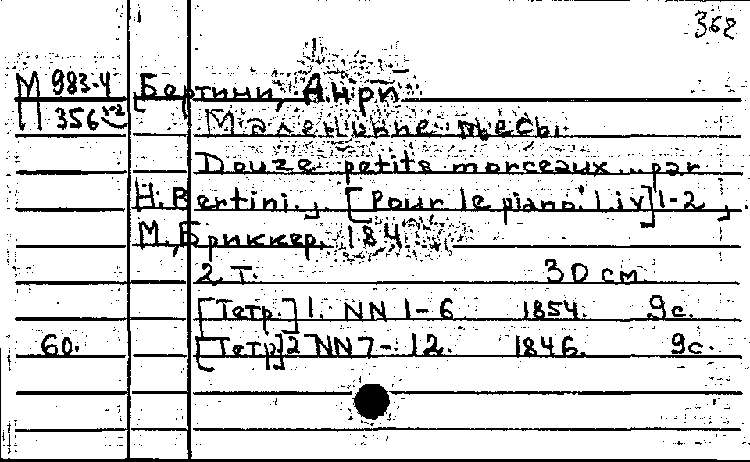 362
М 983-4 Бертини, Анри
П 356 Маленькие пьесы.
Douze petits morceaux... par
H. Bertini., [Pour le piano. Liv] 1-2
М., Бриккер, 184
2 т. 30 см
[Тетр.] 1. NN 1-6 1854. 9с.
60. [Тетр] 2 NN 7-12. 1846. 9с.